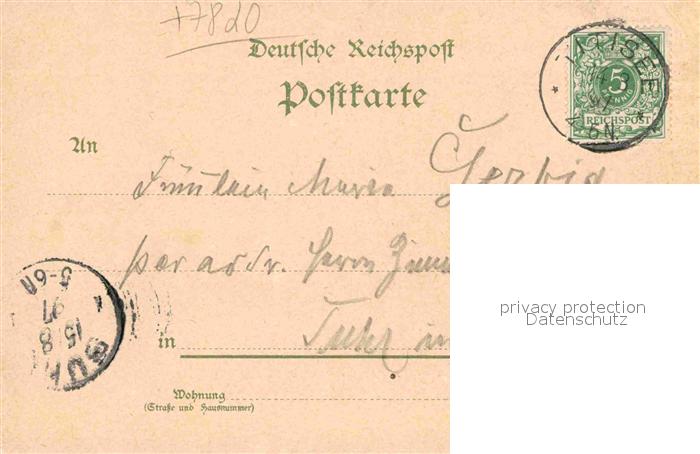 +7820
Deutsche Reichspost
Postkarte
TITISEE
97
4-6N.
5
REICHSPOST
An
Fräulein Maria Gerbig
per adr. Herrn
in
Wohnung
(Straße und Hausnummer)
15 8
97
5-6N
privacy protection
Datenschutz